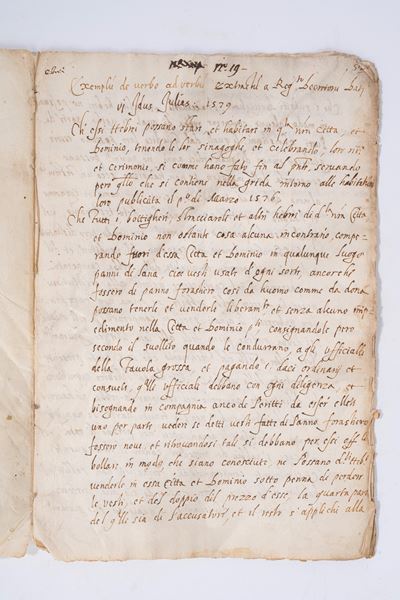 n.º 19
Exemplu de verbo ad verbu extractu a Reg.ro Decretoru
vj Idus Julias 1579
Ch essi hebrei possano stare, et habitare in q.ta n̄ra Citta, et
Dominio, tenendo le sinagoghe, et celebrando lor riti
et cerimonie, si comme hano fatto fin al pn̄te, servando
pero q̄llo che si contiene nella grida intorno alle habitationi
loro publicata il p.º di Marzo 1576
Che Tutti i bottigheri, stracciaroli et altri hebrei di d.ta n̄ra Citta
et Dominio non ostante cosa alcuna incontrario, compe-
rando fuori d'essa Citta et Dominio in qualunque luogo
panni di lana, cioè vesti usate d'ogni sorte, ancorche
fossero di panno forastiero cosi da huomo comme da dona
possano tenerle et venderle liberam.te et senza alcuno imp-
edimento nella Citta et Dominio p.ti consignandole pero
secondo il suollito quando le condurrano, a gli Ufficialli
della Tavola grossa, et pagando i daci ordinarij et
consueti, q̄lli ufficiali debbano con ogni diligenza, et
bisognando in compagnia anco de Periti da esser eletti
uno per parte, veder se detti vesti fatte di Panno forastiero
fossero nove, et ritrovandosi tali si debbano per essi
bollare in modo che siano conosciute, ne Possano d.ti hebrei
venderle in essa Citta et Dominio sotto penna de perdere
le vesti, et del doppio del prezzo d'esse, la quarta parte
del q̄lle sia di l'accusatore, et il resto s'applichi alla